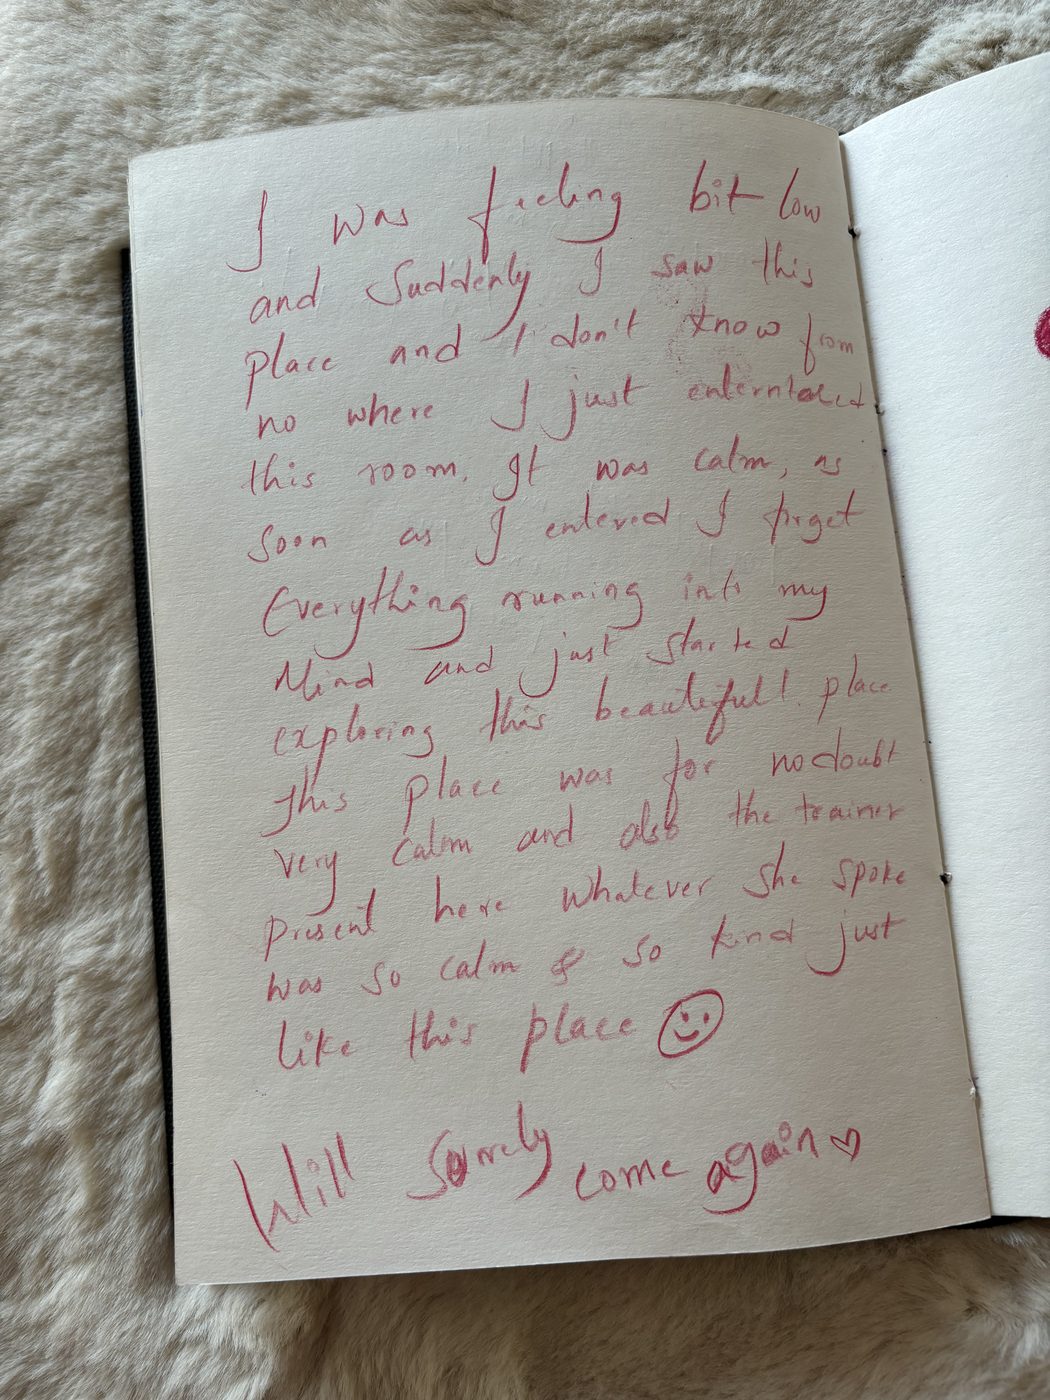 I was feeling bit low
and Suddenly I saw this
place and I don't know from
no where I just
this room. It was calm, as
soon as I entered I forget
Everything running into my
Mind and just started
exploring this beautiful! place
This place was for nodoubt
very calm and also the trainer
present here whatever she spoke
was so calm & so kind just
like this place ☺
Will Surely come again ♡